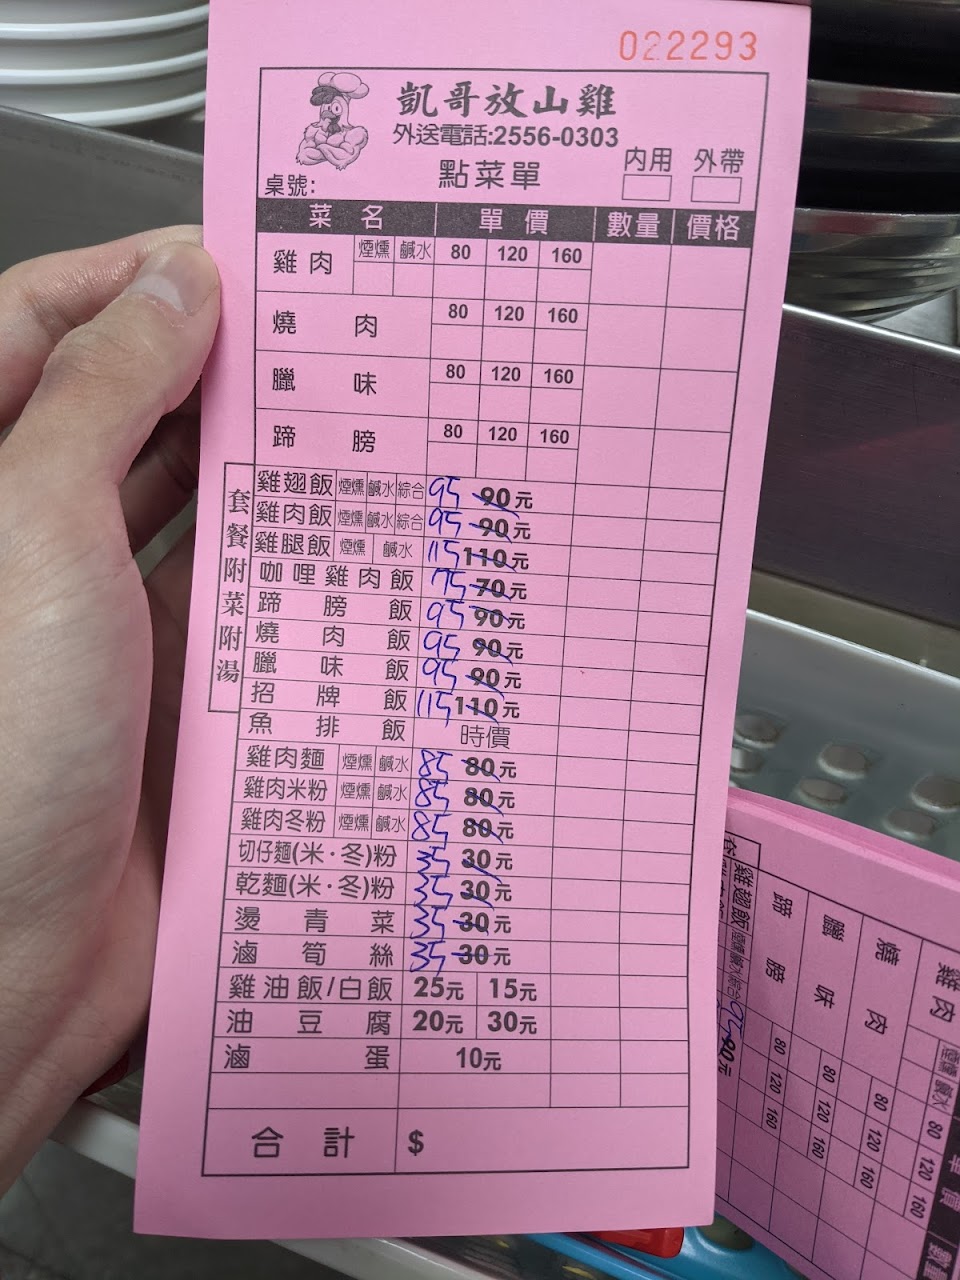 022293
凱哥放山雞
外送電話:2556-0303
點菜單
內用 外帶
桌號:
菜名 單價 數量 價格
雞肉 煙燻 鹹水 80 120 160
燒肉 80 120 160
臘味 80 120 160
蹄膀 80 120 160
套餐附菜附湯
雞翅飯 煙燻 鹹水 綜合 95 90元
雞肉飯 煙燻 鹹水 綜合 95 90元
雞腿飯 煙燻 鹹水 115 110元
咖哩雞肉飯 75 70元
蹄膀飯 95 90元
燒肉飯 95 90元
臘味飯 95 90元
招牌飯 115 110元
魚排飯 時價
雞肉麵 煙燻 鹹水 85 80元
雞肉米粉 煙燻 鹹水 85 80元
雞肉冬粉 煙燻 鹹水 85 80元
切仔麵(米·冬)粉 35 30元
乾麵(米·冬)粉 35 30元
燙青菜 35 30元
滷筍絲 35 30元
雞油飯/白飯 25元 15元
油豆腐 20元 30元
滷蛋 10元
合計 $
雞肉 煙燻 鹹水 80 120 160
燒肉 80 120 160
臘味 80 120 160
蹄膀 80 120 160
雞翅飯 煙燻 鹹水 綜合 95 90元